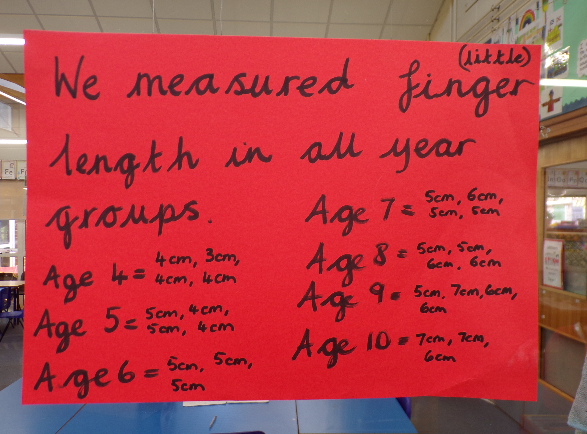 (little)
We measured finger
length in all year
groups.
Age 4 = 4cm, 3cm,
4cm, 4cm
Age 5 = 5cm, 4cm,
5cm, 4cm
Age 6 = 5cm, 5cm,
5cm
Age 7 = 5cm, 6cm,
5cm, 5cm
Age 8 = 5cm, 5cm,
6cm, 6cm
Age 9 = 5cm, 7cm, 6cm,
6cm
Age 10 = 7cm, 7cm,
6cm